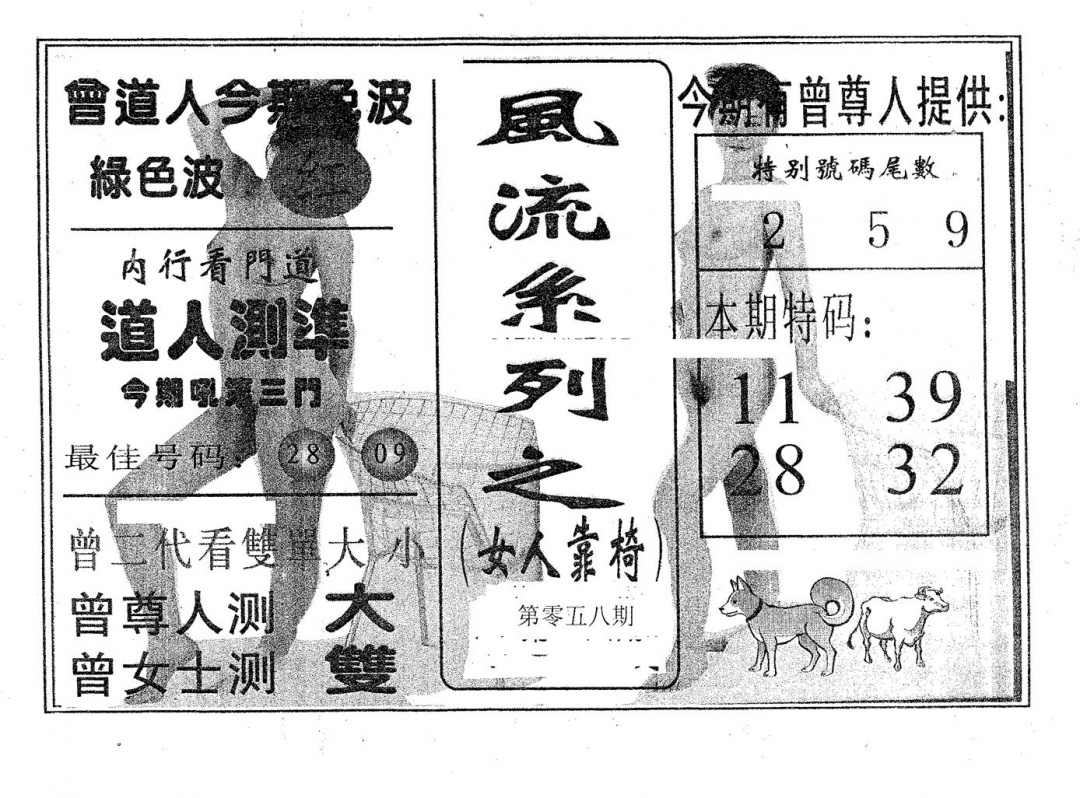 曾道人今期色波
綠色波
内行看門道
道人測準
今期吼準三門
最佳号码: 28 09
曾二代看雙單大小
曾尊人测 大
曾女士测 雙
風流系列之
(女人靠椅)
第零五八期
今期有曾尊人提供:
特别號碼尾數
2 5 9
本期特码:
11 39
28 32